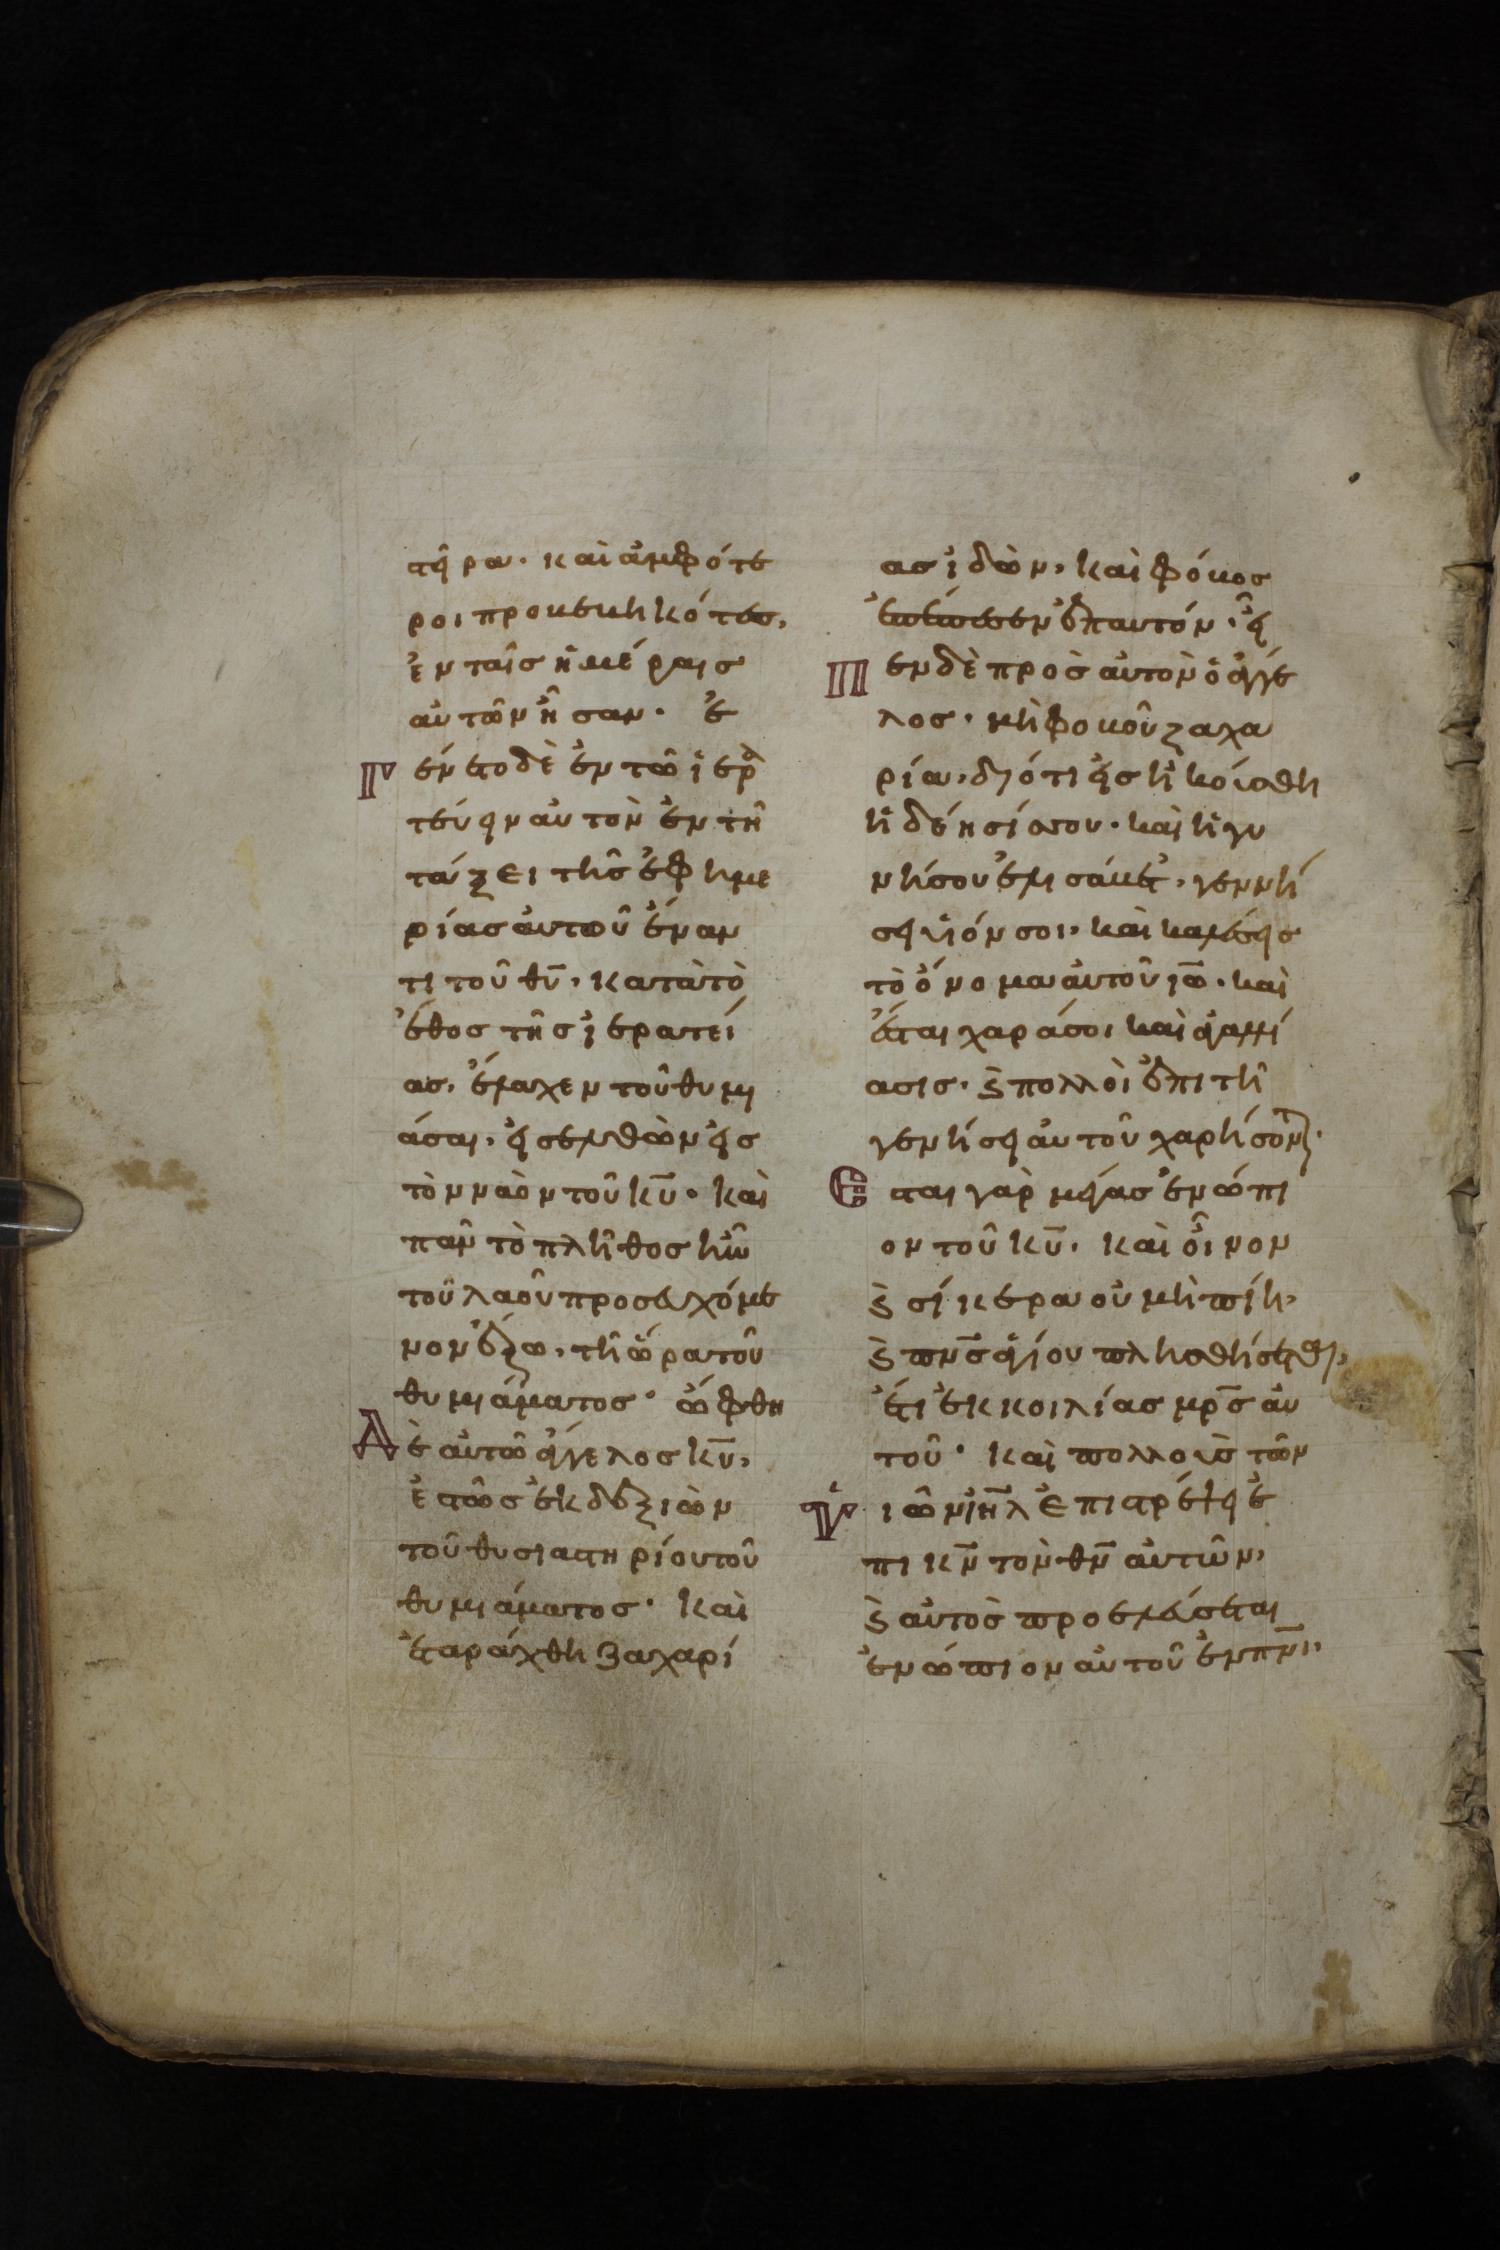 στεῖρα· καὶ ἀμφότε
ροι προβεβηκότες,
ἐν ταῖς ἡμέραις
αὐτῶν ἦσαν· ἐ
Γ ένετο δὲ ἐν τῶ ἱερα
τεύειν αὐτὸν ἐν τῆ
τάξει τῆς ἐφημε
ρίας αὐτοῦ ἔναν
τι τοῦ θῡ, κατὰ τὸ
ἔθος τῆς ἱερατεί
ας, ἔλαχεν τοῦ θυμι
άσαι, εἰσελθὼν εἰς
τὸν ναὸν τοῦ κῡ· καὶ
πᾶν τὸ πλῆθος ἦν
τοῦ λαοῦ προσευχόμε
νον ἔξω, τῆ ὥρα τοῦ
θυμιάματος· ὤφθη
Δ ὲ αὐτῶ ἄγγελος κῡ,
ἑστὼς ἐκ δεξιῶν
τοῦ θυσιαστηρίου τοῦ
θυμιάματος· καὶ
ἐταράχθη Ζαχαρί
ας ἰδὼν, καὶ φόβος
ἐπέπεσεν ἐπ αὐτόν· εἶ
Π εν δὲ πρὸς αὐτὸν ὁ ἄγγε
λος· μὴ φοβοῦ ζαχα
ρία, διότι εἰσηκούσθη
ἡ δέησίς σου· καὶ ἡ γυ
νή σου ἐλισάβετ, γεννή
σει υἱόν σοι, καὶ καλέσεις
τὸ ὄνομα αὐτοῦ ιω̄· καὶ
ἔσται χαρά σοι καὶ ἀγαλλί
ασις· ϗ πολλοὶ ἐπι τῆ
γενήσει αὐτοῦ χαρήσοντ·
Ε σται γὰρ μέγας ἐνώπι
ον τοῦ κῡ· καὶ οἶνον
ϗ σίκερα οὐ μὴ πίη,
ϗ πν̄ς ἁγίου πλησθήσεται,
ἔτι ἐκ κοιλίας μρ̄ς αὐ
τοῦ· καὶ πολλοὺς τῶν
Υ ἱῶν ιη̄λ ἐπιστρέψει ἐ
πι κν̄ τὸν θν̄ αὐτῶν,
ϗ αὐτὸς προελεύσεται
ἐνώπιον αὐτοῦ ἐν πν̄ι,